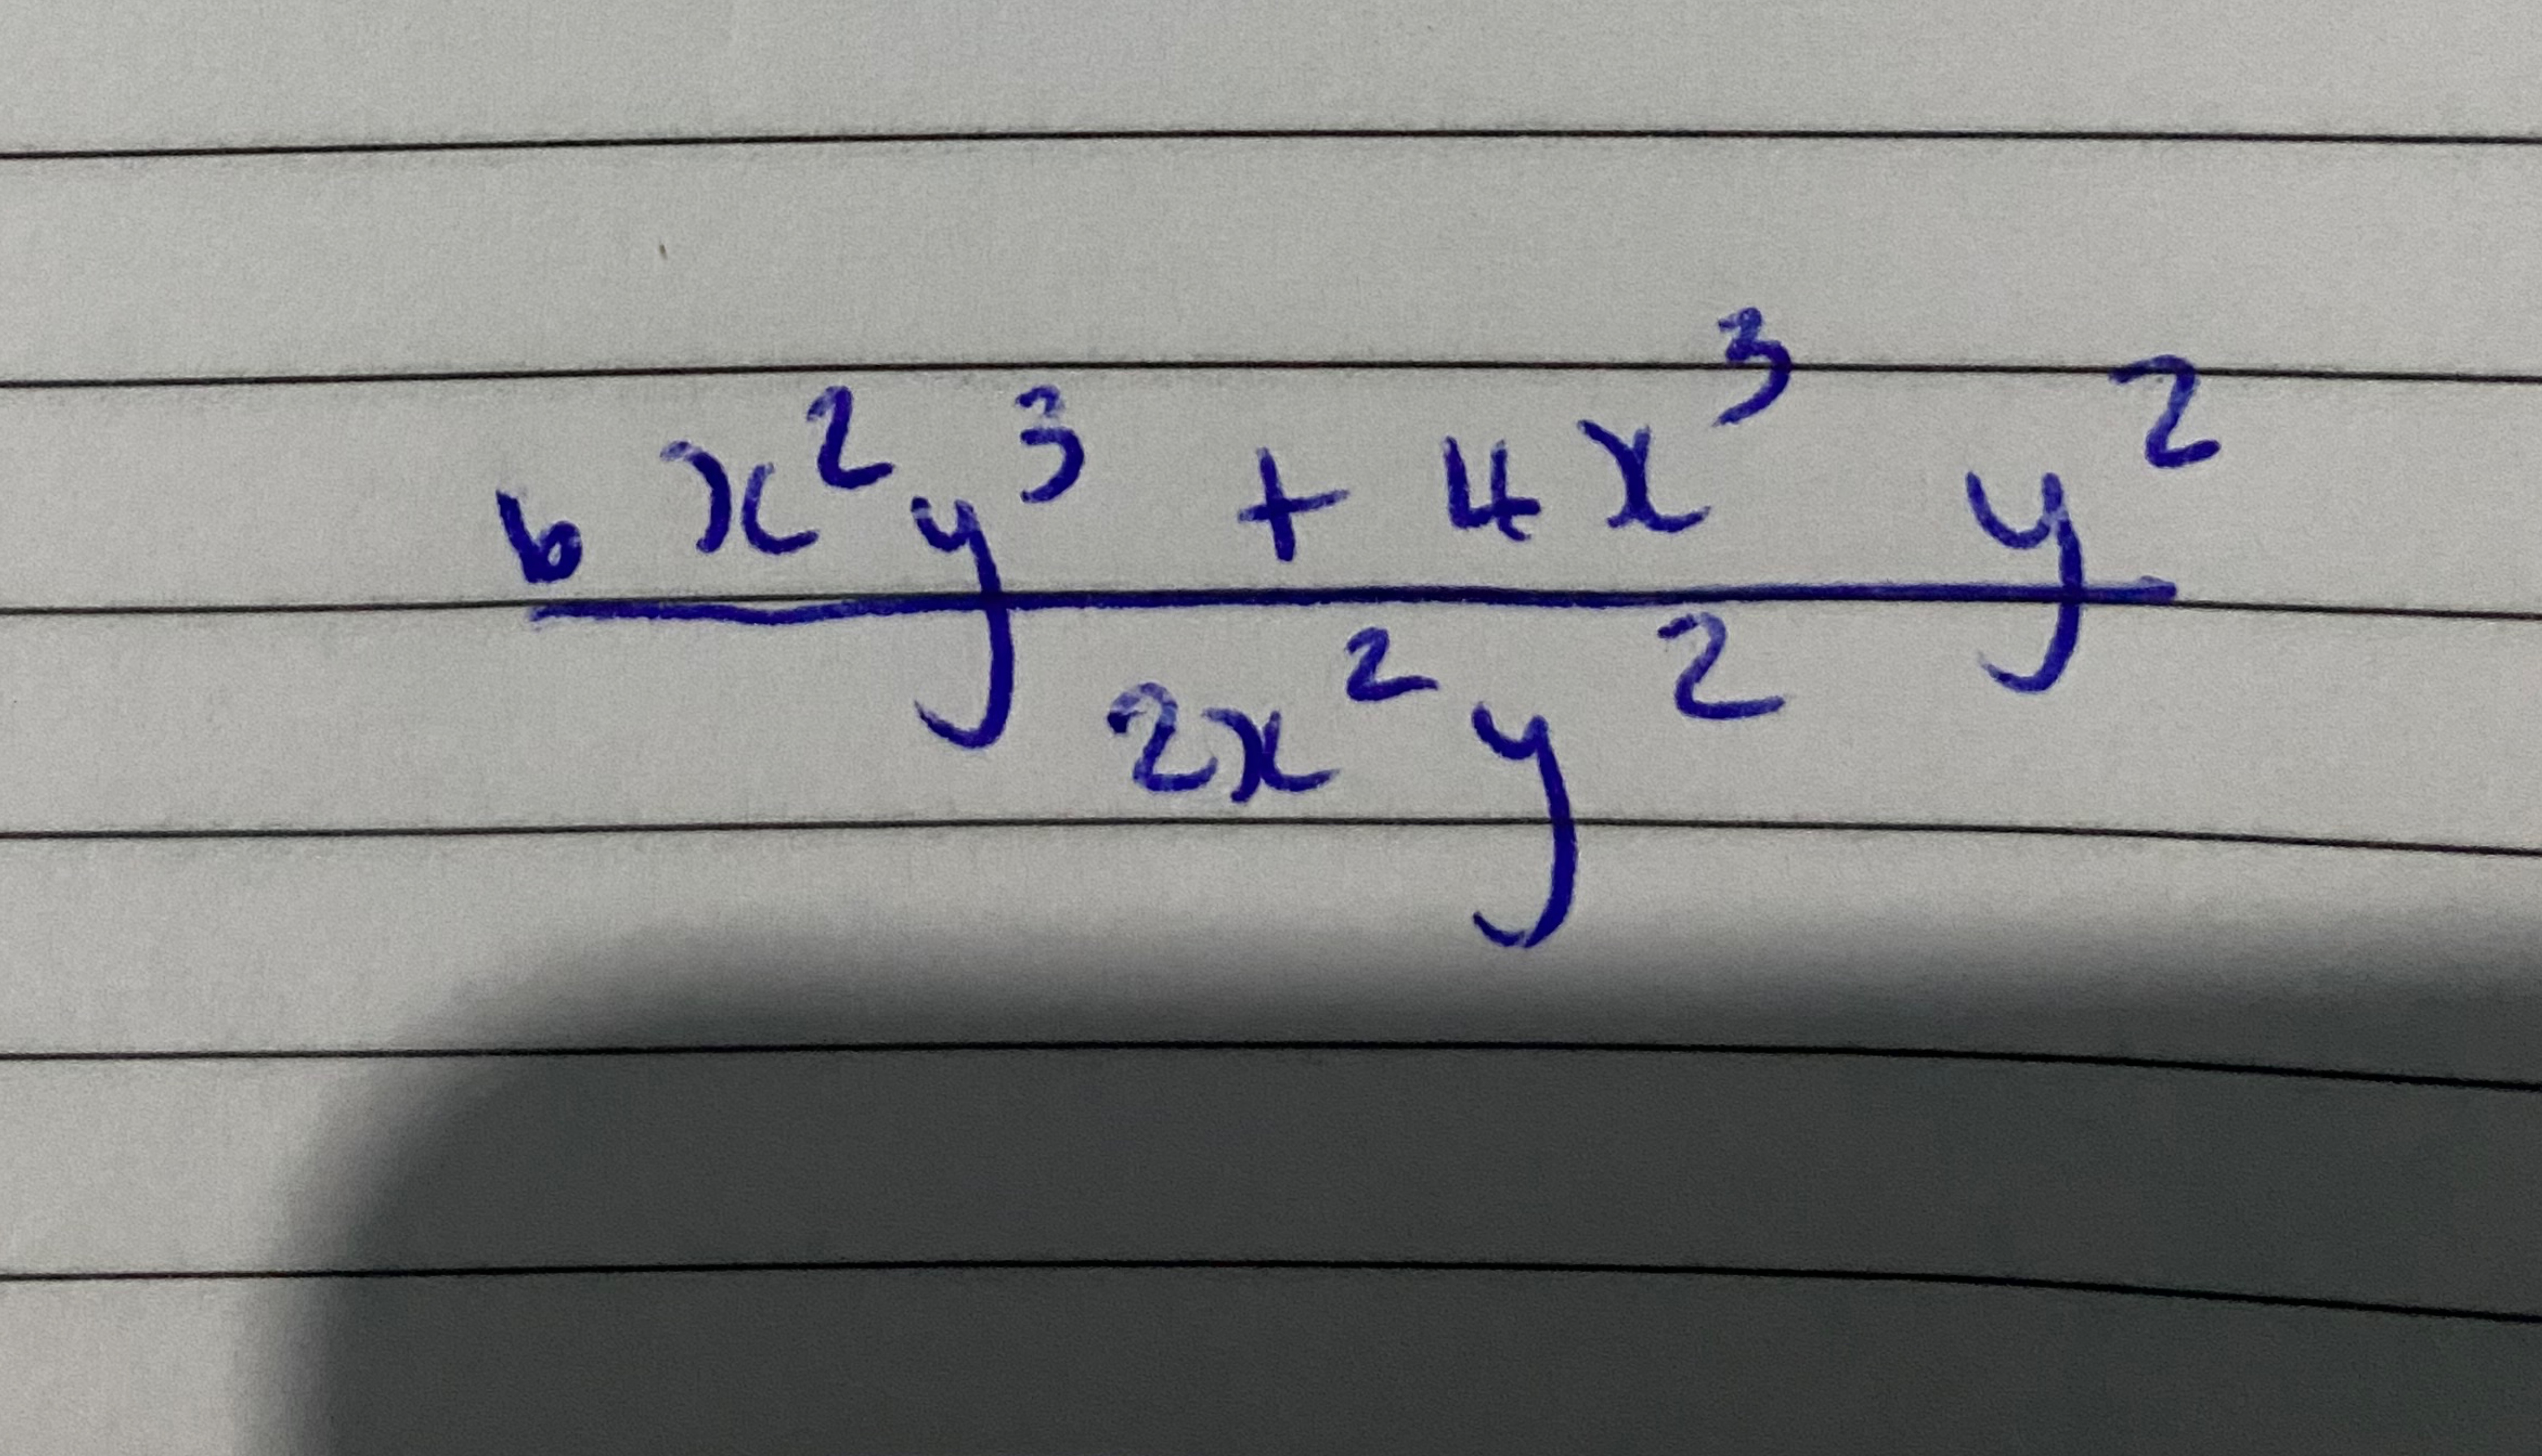 6x²y³ + 4x³ y²
2x² y²